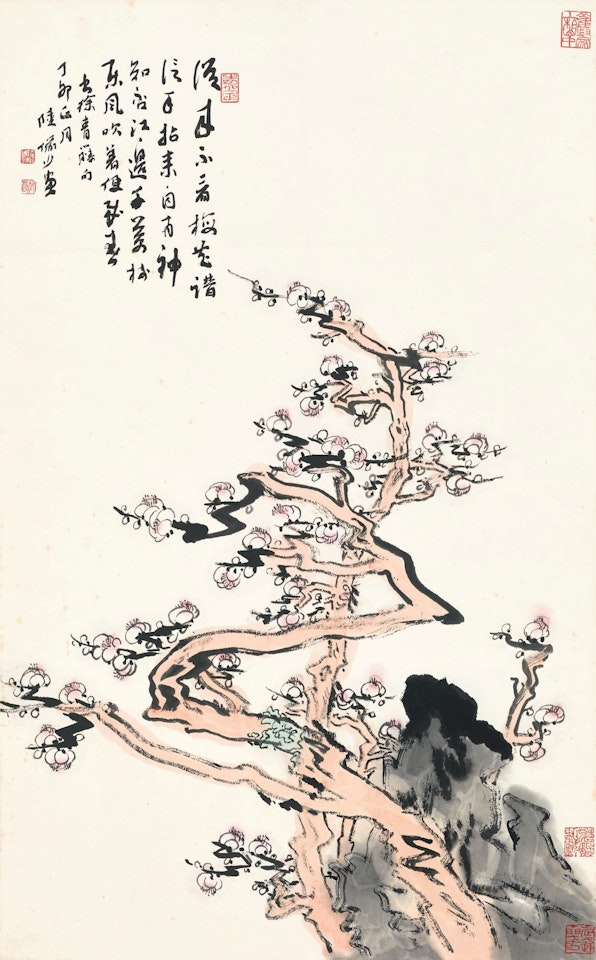 從来不看梅花譜
信手拈来自有神
知否江邊千萬樹
東風吹着便成春
書徐青藤句
丁卯正月
陸儼少畫